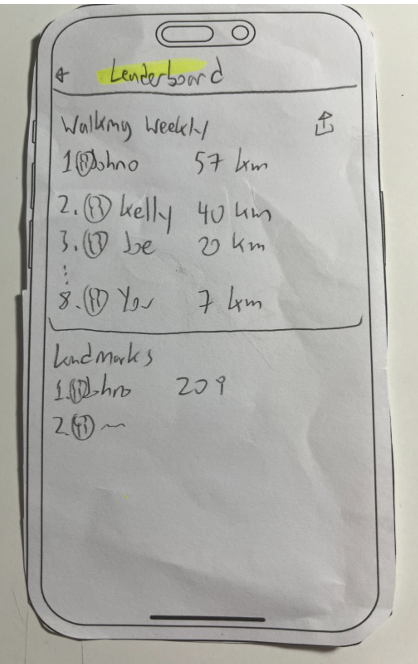 ← Leaderboard
Walking Weekly
1. Johno 57 km
2. Kelly 40 km
3. Joe 20 km
⋮
8. You 7 km
Landmarks
1. Johno 209
2. ~